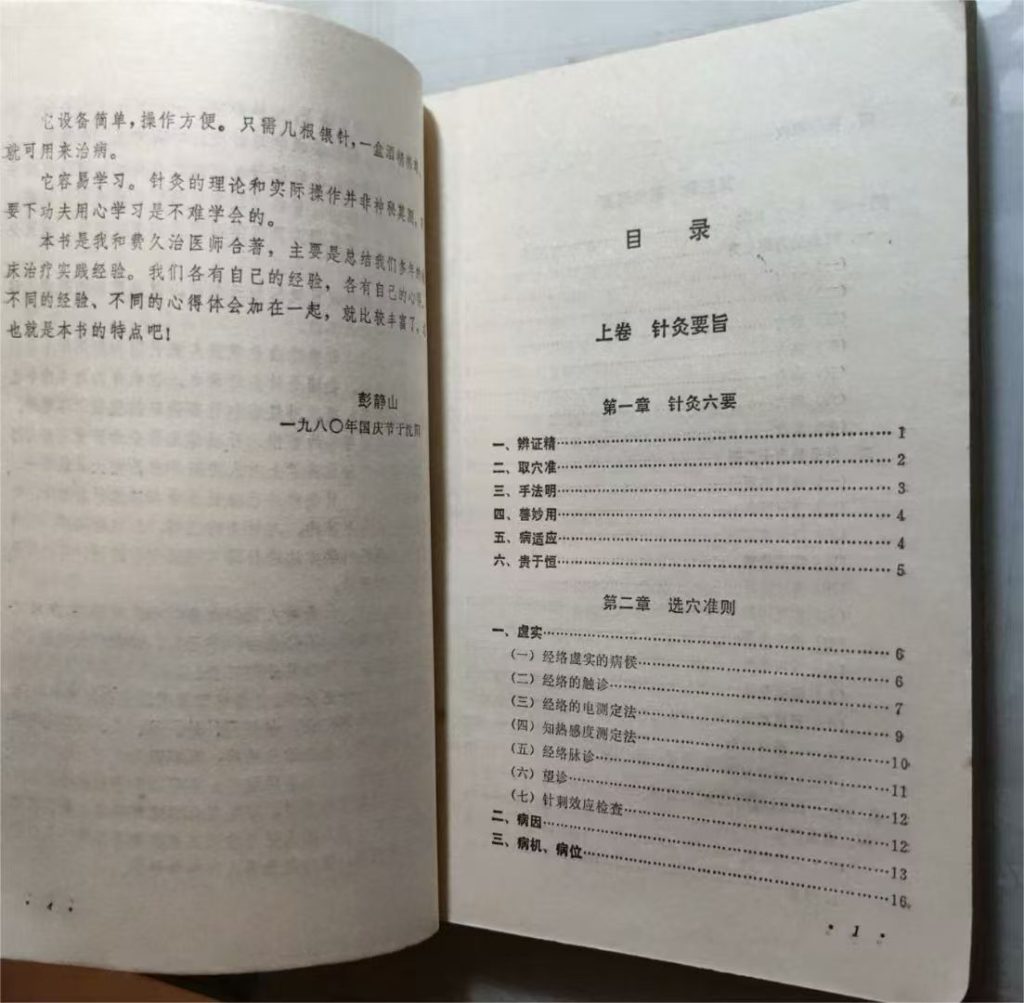 它设备简单，操作方便。只需几根银针，一盒酒精棉球，
就可用来治病。
它容易学习。针灸的理论和实际操作并非神秘莫测，
要下功夫用心学习是不难学会的。
本书是我和费久治医师合著，主要是总结我们多年的
床治疗实践经验。我们各有自己的经验，各有自己的心得，
不同的经验、不同的心得体会加在一起，就比较丰富了，
也就是本书的特点吧！
彭静山
一九八〇年国庆节于沈阳
· 4 ·
目 录
上卷 针灸要旨
第一章 针灸六要
一、辨证精……1
二、取穴准……2
三、手法明……3
四、善妙用……4
五、病适应……4
六、贵于恒……5
第二章 选穴准则
一、虚实……6
（一）经络虚实的病候……6
（二）经络的触诊……7
（三）经络的电测定法……9
（四）知热感度测定法……10
（五）经络脉诊……11
（六）望诊……12
（七）针刺效应检查……12
二、病因……13
三、病机、病位……16
· 1 ·